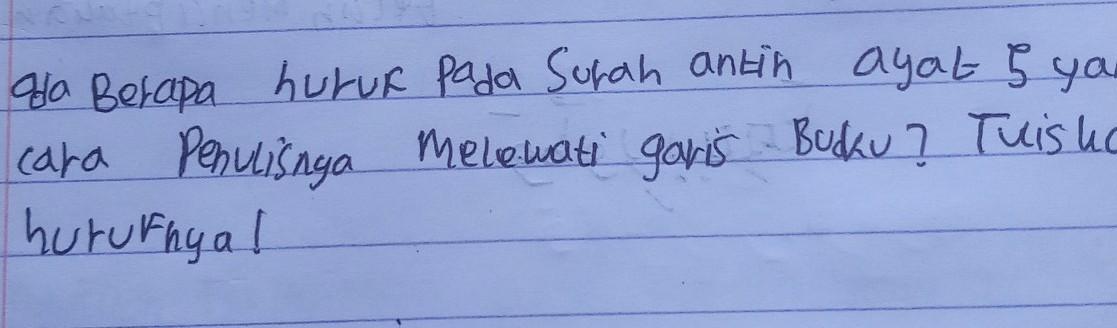 ada Berapa huruf Pada Surah antin ayat 5 ya
cara Penulisnga Melewati garis Buku? Tulisk
hurufnya!